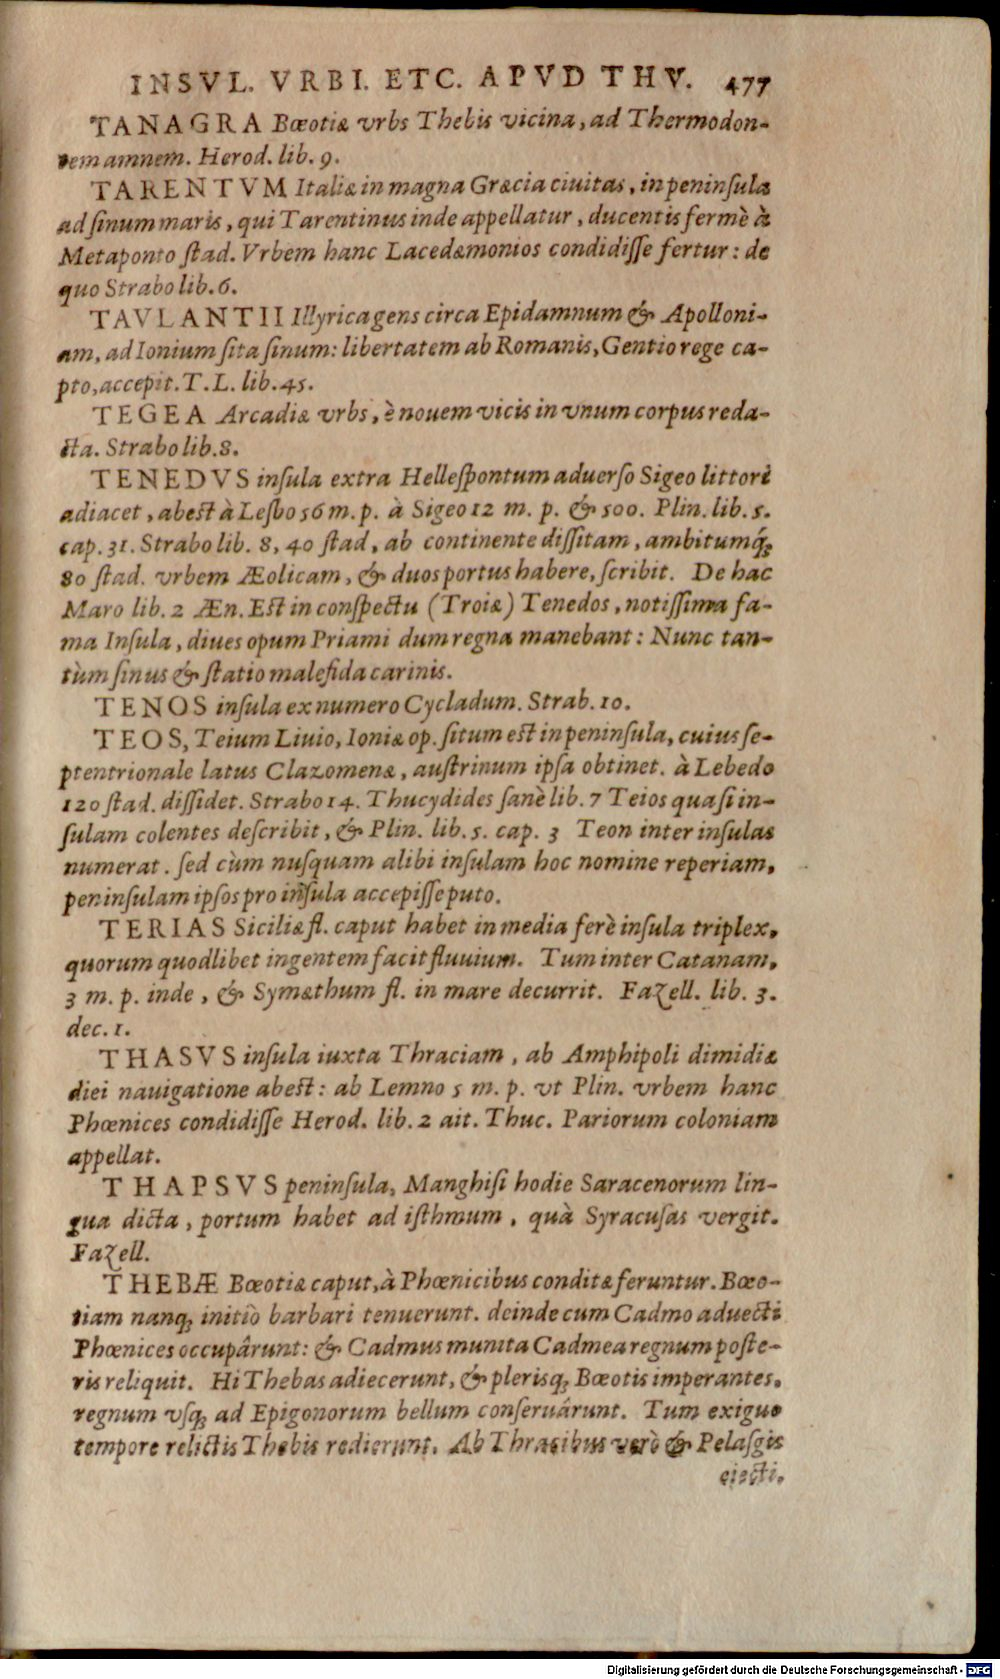 INSVL. VRBI. ETC. APVD THV. 477
TANAGRA Bœotiæ vrbs Thebis vicina, ad Thermodon-
tem amnem. Herod. lib. 9.
TARENTVM Italiæ in magna Græcia ciuitas, in peninſula
ad ſinum maris, qui Tarentinus inde appellatur, ducentis fermè à
Metaponto ſtad. Vrbem hanc Lacedæmonios condidiſſe fertur: de
quo Strabo lib. 6.
TAVLANTII Illyrica gens circa Epidamnum & Apolloni-
am, ad Ionium ſita ſinum: libertatem ab Romanis, Gentio rege ca-
pto, accepit. T. L. lib. 45.
TEGEA Arcadiæ vrbs, è nouem vicis in vnum corpus reda-
cta. Strabo lib. 8.
TENEDVS inſula extra Helleſpontum aduerſo Sigeo littori
adiacet, abest à Lesbo 56 m. p. à Sigeo 12 m. p. & 500. Plin. lib. 5.
cap. 31. Strabo lib. 8, 40 ſtad, ab continente diſſitam, ambitumq́;
80 ſtad. vrbem Æolicam, & duos portus habere, ſcribit. De hac
Maro lib. 2 Æn. Eſt in conſpectu (Troiæ) Tenedos, notiſſima fa-
ma Inſula, diues opum Priami dum regna manebant: Nunc tan-
tùm ſinus & ſtatio malefida carinis.
TENOS inſula ex numero Cycladum. Strab. 10.
TEOS, Teium Liuio, Ioniæ op. ſitum eſt in peninſula, cuius ſe-
ptentrionale latus Clazomenæ, auſtrinum ipſa obtinet. à Lebedo
120 ſtad. diſſidet. Strabo 14. Thucydides ſanè lib. 7 Teios quaſi in-
ſulam colentes deſcribit, & Plin. lib. 5. cap. 3 Teon inter inſulas
numerat. ſed cùm nuſquam alibi inſulam hoc nomine reperiam,
peninſulam ipſos pro inſula accepiſſe puto.
TERIAS Siciliæ fl. caput habet in media ferè inſula triplex,
quorum quodlibet ingentem facit fluuium. Tum inter Catanam,
3 m. p. inde, & Symæthum fl. in mare decurrit. Fazell. lib. 3.
dec. 1.
THASVS inſula iuxta Thraciam, ab Amphipoli dimidiæ
diei nauigatione abeſt: ab Lemno 5 m. p. vt Plin. vrbem hanc
Phœnices condidiſſe Herod. lib. 2 ait. Thuc. Pariorum coloniam
appellat.
THAPSVS peninſula, Manghiſi hodie Saracenorum lin-
gua dicta, portum habet ad iſthmum, quà Syracuſas vergit.
Fazell.
THEBÆ Bœotiæ caput, à Phœnicibus conditæ feruntur. Bœo-
tiam nanq; initiò barbari tenuerunt. deinde cum Cadmo aduecti
Phœnices occupârunt: & Cadmus munita Cadmea regnum poſte-
ris reliquit. Hi Thebas adiecerunt, & plerisq; Bœotis imperantes,
regnum vſq; ad Epigonorum bellum conſeruârunt. Tum exiguo
tempore relictis Thebis redierunt. Ab Thracibus verò & Pelaſgis
eiecti.
Digitalisierung gefördert durch die Deutsche Forschungsgemeinschaft - DFG